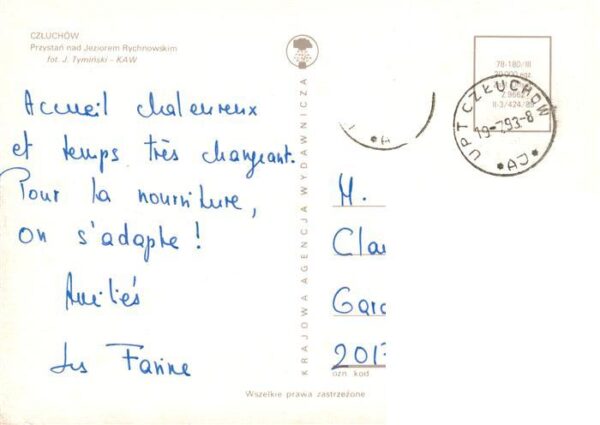 CZŁUCHÓW
Przystań nad Jeziorem Rychnowskim
fot. J. Tymiński - KAW
Accueil chaleureux
et temps très changeant.
Pour la nourriture,
on s'adapte !
Amitiés
KRAJOWA AGENCJA WYDAWNICZA
78-180/III
II-3/424/
UPT CZŁUCHÓW
19-7.93-8
*AJ*
M.
Cla
Gar
201
ozn kod
Wszelkie prawa zastrzeżone